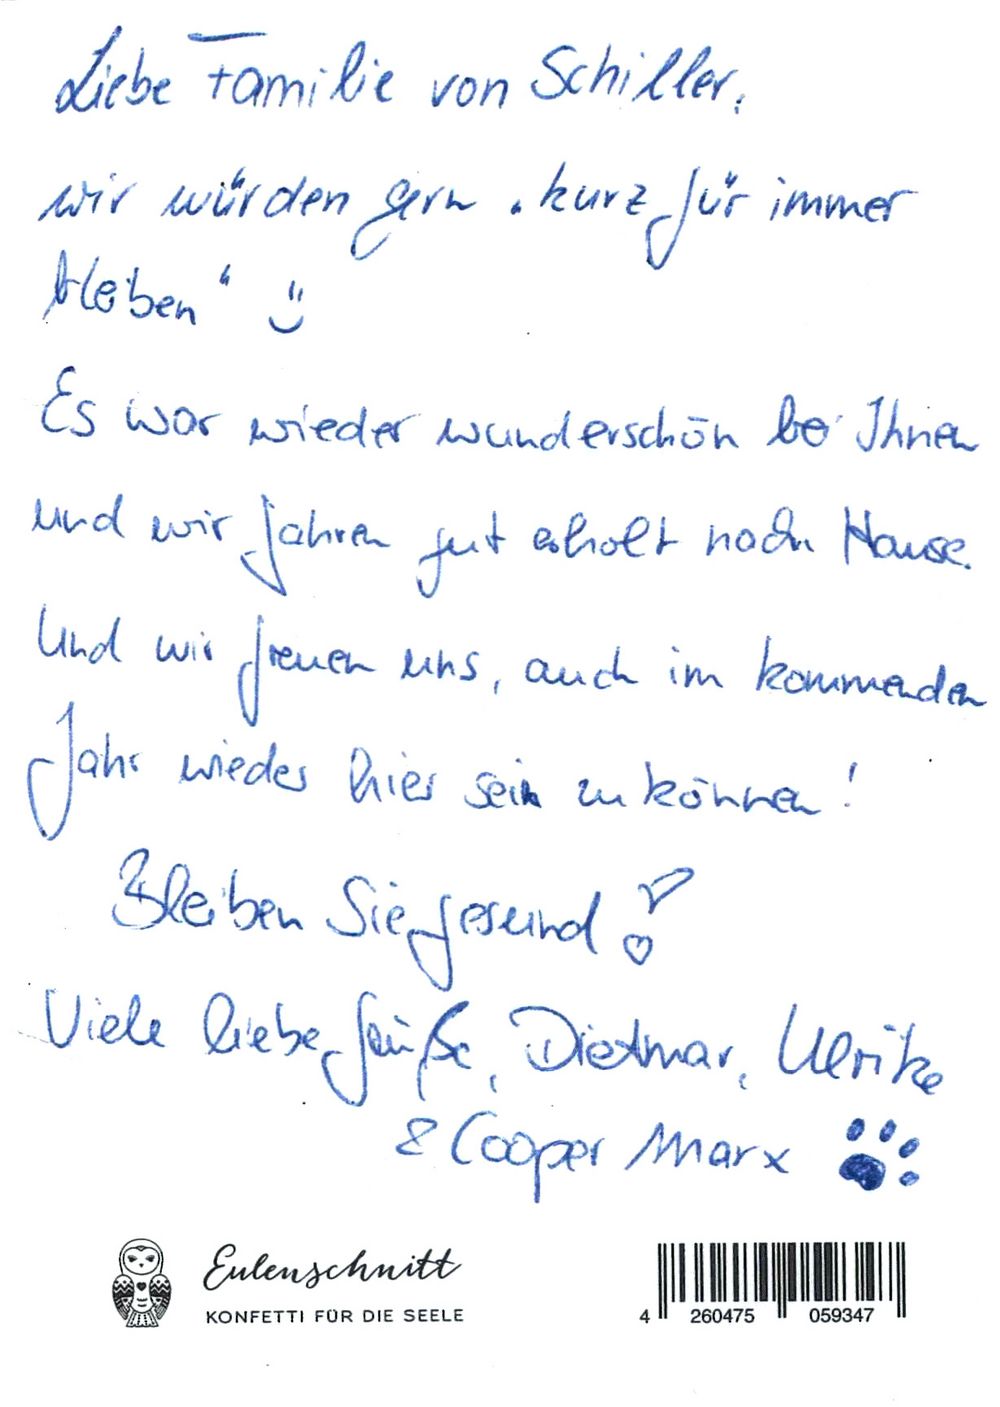 Liebe Familie von Schiller,
wir würden gern "kurz für immer
bleiben" Ü
Es war wieder wunderschön bei Ihnen
und wir fahren gut erholt nach Hause.
Und wir freuen uns, auch im kommenden
Jahr wieder hier sein zu können!
Bleiben Sie gesund!
Viele liebe Grüße, Dietmar, Ulrike
& Cooper Marx
Eulenschnitt
KONFETTI FÜR DIE SEELE
4 260475 059347